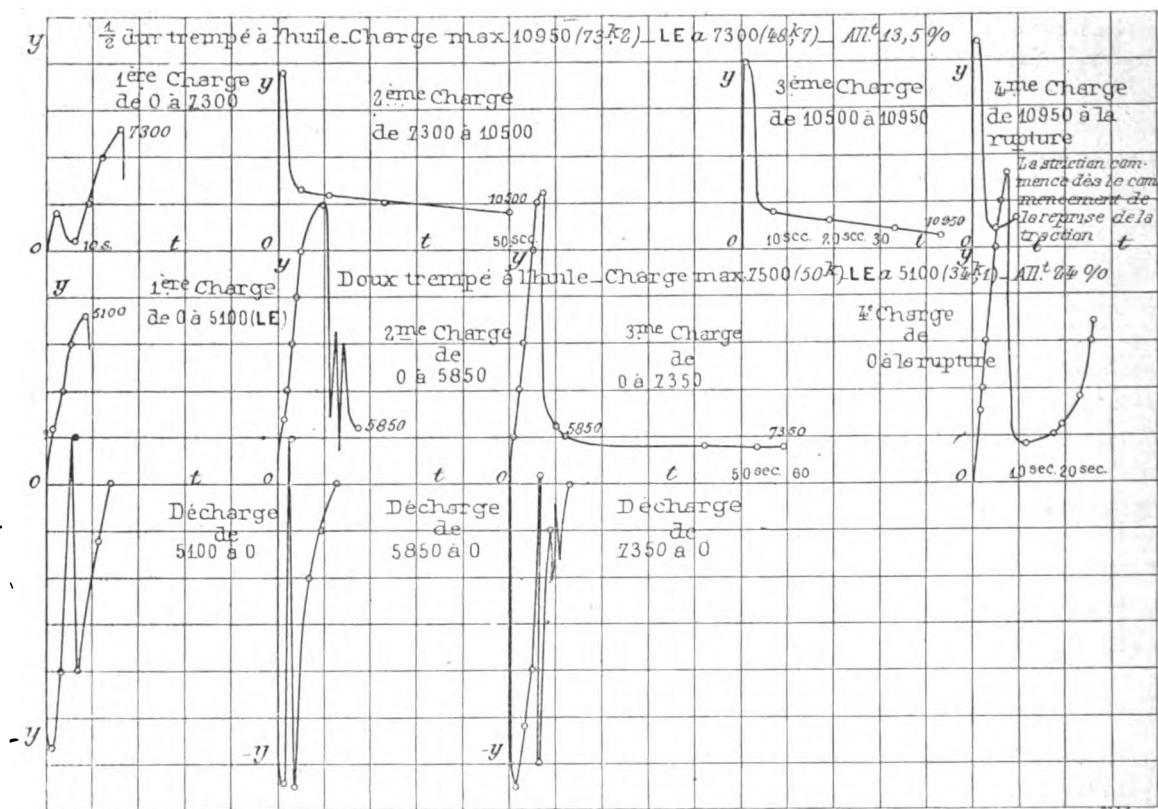 y
½ dur trempé à l'huile_Charge max. 10950 (73k,2)_LE a 7300 (48k,7)_All.t 13,5 %
1ère Charge
de 0 à 7300
7300
0
10 s.
t
y
2ème Charge
de 7300 à 10500
10500
0
t
50 sec
y
3ème Charge
de 10500 à 10950
10950
0
10 sec. 20 sec. 30
t
y
4me Charge
de 10950 à la
rupture
La striction com-
mence dès le com
mencement de
la reprise de la
traction
0
t
t
Doux trempé à l'huile_Charge max. 7500 (50k) LE a 5100 (34k,1)_All.t 24 %
y
1ère Charge
de 0 à 5100 (LE)
5100
0
t
y
2me Charge
de
0 à 5850
5850
0
t
y
3me Charge
de
0 à 7350
5850
7350
0
50 sec. 60
y
4e Charge
de
0 à la rupture
0
10 sec. 20 sec.
Décharge
de
5100 à 0
Décharge
de
5850 à 0
Décharge
de
7350 à 0
-y
-y
-y